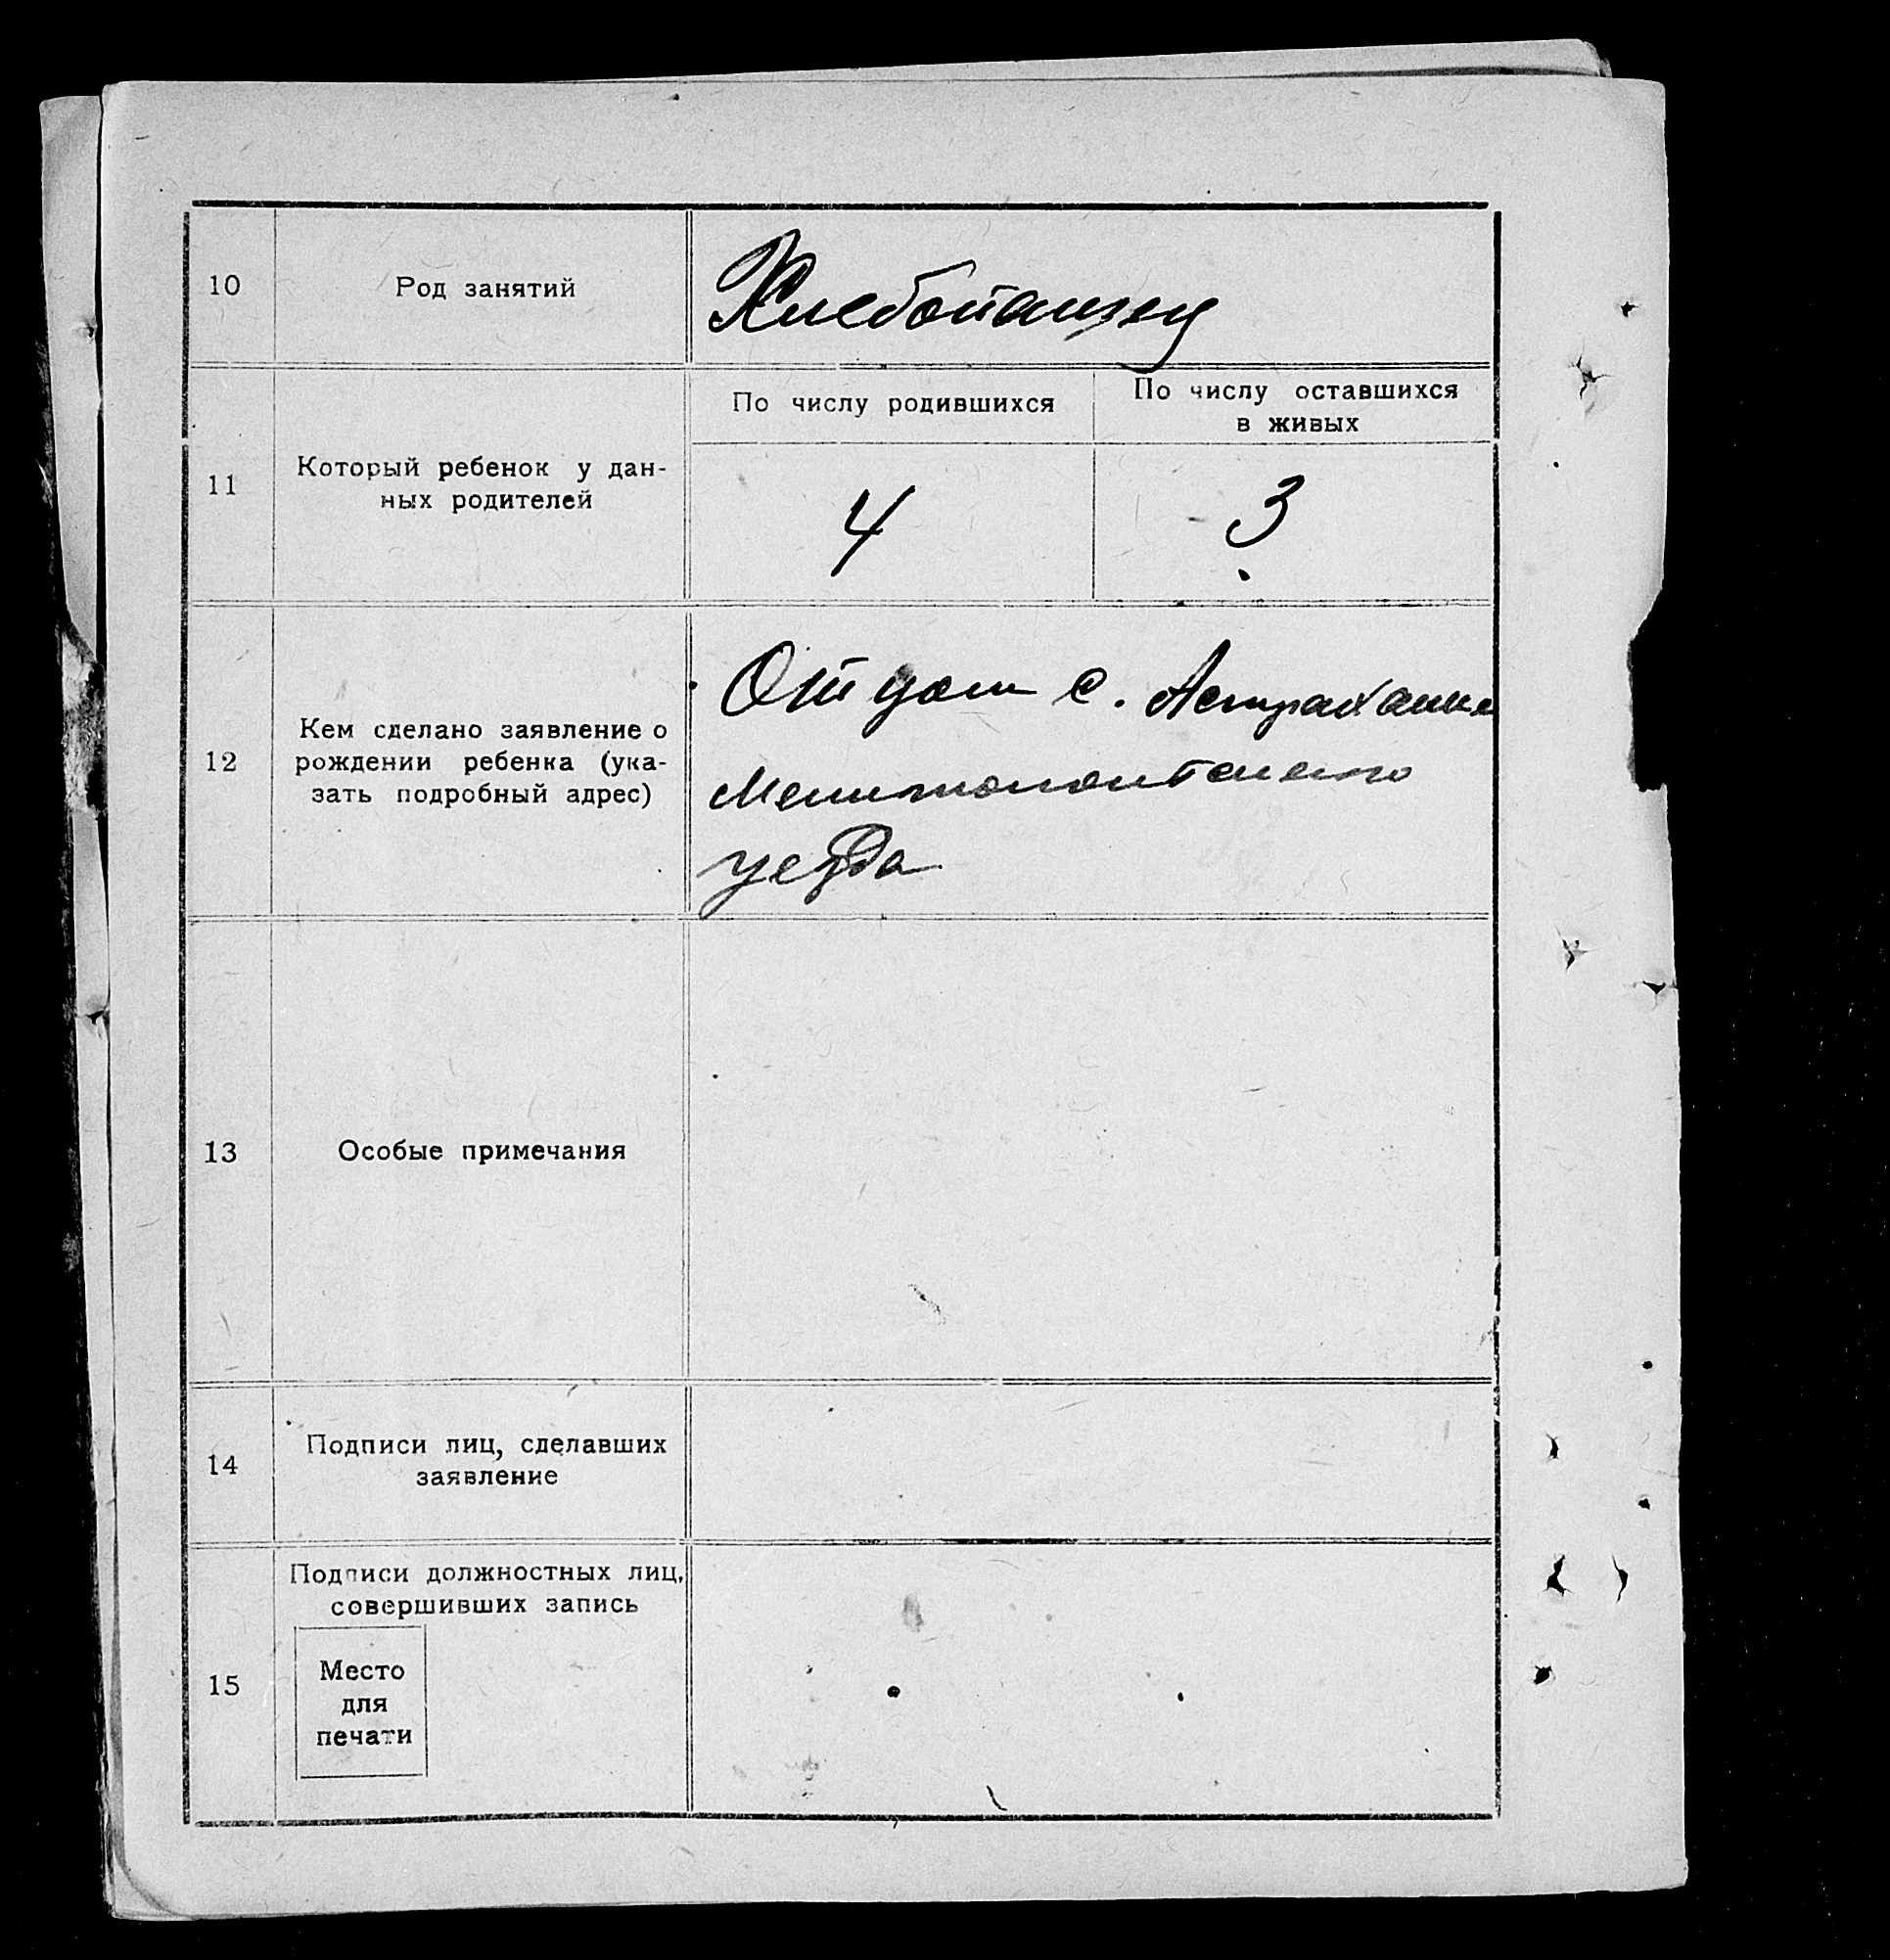 10
Род занятий
Хлебопашец
11
Который ребенок у дан-
ных родителей
По числу родившихся
По числу оставшихся
в живых
4
3
12
Кем сделано заявление о
рождении ребенка (ука-
зать подробный адрес)
Отцом с. Астраханка
Мелитопольского
уезда
13
Особые примечания
14
Подписи лиц, сделавших
заявление
15
Подписи должностных лиц,
совершивших запись
Место
для
печати